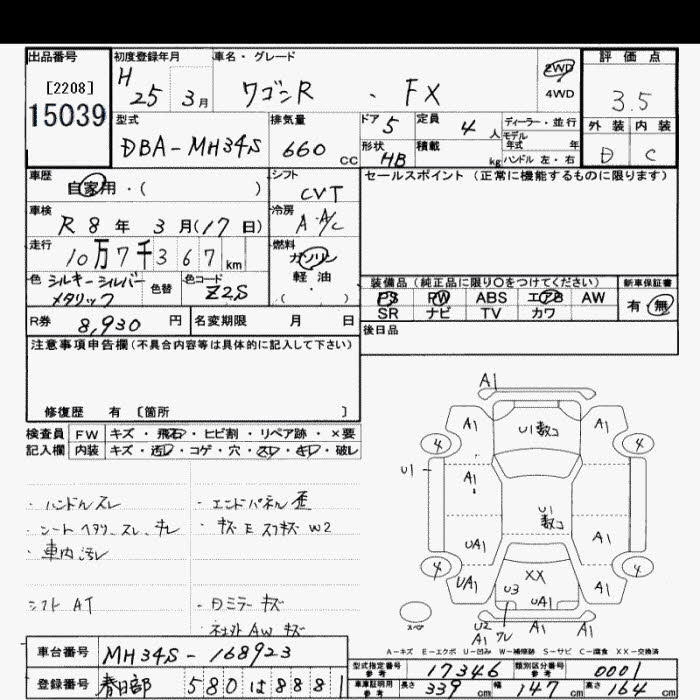 出品番号
[2208]
15039
初度登録年月
H 25 3月
車名・グレード
ワゴンR ・ FX
2WD
4WD
評価点
3.5
外装 内装
D C
型式
DBA-MH34S
排気量
660 cc
ドア 5
定員 4 人
形状 HB
積載 kg
ディーラー・並行
モデル年式 年
ハンドル 左・右
車歴
自家用・( )
シフト
CVT
セールスポイント (正常に機能するものに限ります)
車検
R 8年 3月(17日)
冷房
A・A/C
走行
10万7千367km
燃料
ガソリン
軽・油
( ・ )
色 シルキーシルバーメタリック
色替
色コード
Z2S
装備品 (純正品に限り〇をつけてください)
PS PW ABS エアB AW
SR ナビ TV カワ
新車保証書
有・無
R券 8,930 円
名変期限 月 日
後日品
注意事項申告欄(不具合内容等は具体的に記入して下さい)
修復歴 有 〔箇所 〕
検査員 FW キズ・飛石・ヒビ割・リペア跡・×要
記入欄 内装 キズ・汚レ・コゲ・穴・スレ・キレ・破レ
・ハンドルスレ
・シートヘタリ、スレ、キレ
・車内汚レ
シフト AT
・エンドパネル歪
・キズ E スリキズ W2
・Rミラーキズ
・社外AWキズ
A1
A1 U1数コ A1
4 4
U1
A1
U1数コ
UA1 A1
4 4
XX
UA1 U3 UA1 A1
スペア
U2 A1 ワレ A1
A-キズ E-エクボ U-凹み W-補修跡 S-サビ C-腐食 XX-交換済
車台番号 MH34S-168923
登録番号 春日部 580 は 8881
型式指定番号 参考 17346
類別区分番号 参考 0001
車庫証明用 参考 長さ 339cm 幅 147cm 高さ 164cm